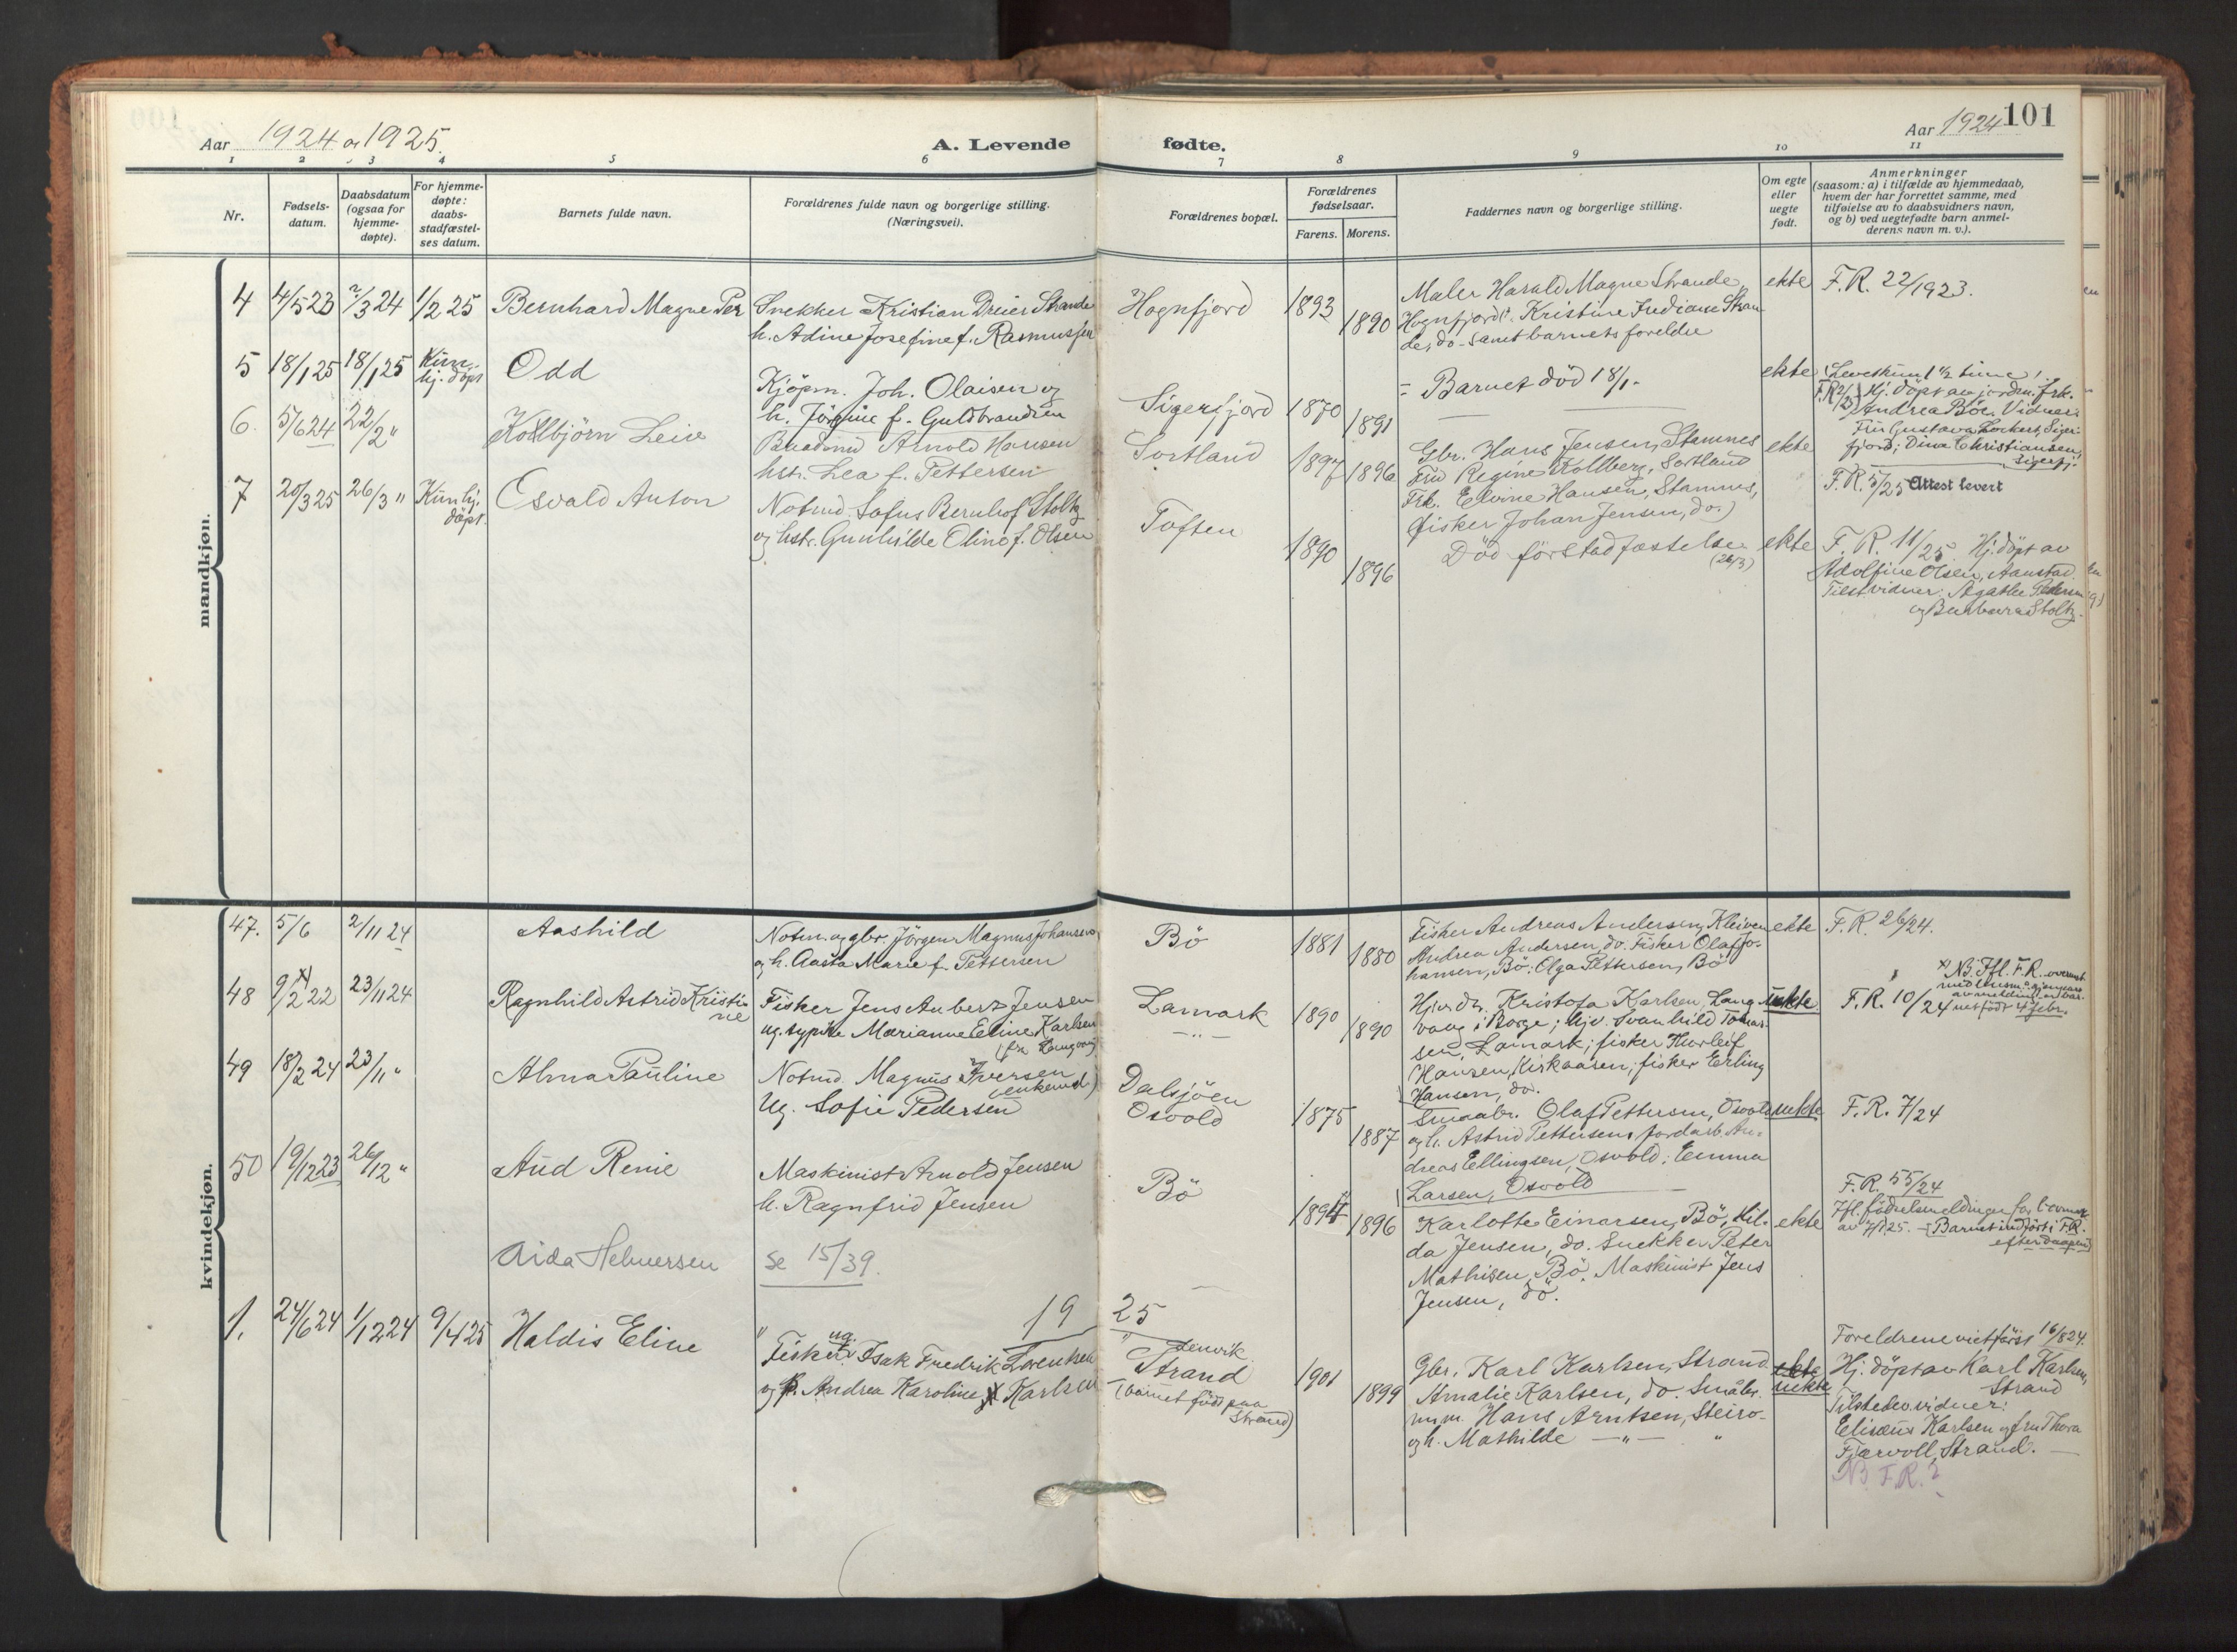 101
Aar 1924 og 1925.
A. Levende fødte.
Aar 1924
1 2 3 4 5 6 7 8 9 10 11
Nr.
Fødsels-
datum.
Daabsdatum
(ogsaa for
hjemme-
døpte).
For hjemme-
døpte:
daabs-
stadfæstel-
ses datum.
Barnets fulde navn.
Forældrenes fulde navn og borgerlige stilling.
(Næringsvei).
Forældrenes bopæl.
Forældrenes
fødselsaar.
Farens. Morens.
Faddernes navn og borgerlige stilling.
Om egte
eller
uegte
født.
Anmerkninger
(saasom: a) i tilfælde av hjemmedaab,
hvem der har forrettet samme, med
tilføielse av to daabsvidners navn,
og b) ved uegtefødte barn anmel-
derens navn m. v.).
mandkjøn.
4 4/5 23 2/3 24 1/2 25 Bernhard Magne Per
Snekker Kristian Dreier Strande
h. Adine Josefine f. Rasmussen
Hognfjord 1893 1890
Maler Harald Magne Strande,
Hognfjord; Kristine Frediane Stran
de, do - samt barnets foreldre
ekte F.R. 22/1923.
5 18/1 25 18/1 25 Kun
hj. döpt
Odd
Kjöpm. Joh. Olaisen og
h. Jörgine f. Guldbrandsen
Sigerfjord 1870 1891
= Barnet död 18/1-
ekte (Levet kun 1 1/2 time!
F.R 2/25 Hj. döpt av jordm. frk.
Andrea Böe. Vidner:
Fru Gustava Lockert, Siger-
fjord; Dina Christiansen,
Sigerfj.
6. 5/6 24 22/2 " Kolbjörn Leie
Buadmd Arnold Hansen
hstr. Lea f. Pettersen
Sortland 1897 1896
Gbr. Hans Jensen, Stamnes
Fru Regine Kollberg, Sortland
Frk. Elvine Hansen, Stamnes,
fisker Johan Jensen, do.
ekte F.R. 5/25 Attest levert
7 20/3 25 26/3 " Kun hj.
döpt.
Osvald Anton
Notmd. Sofus Bernhof Stoltz
og hstr. Gunhilde Oline f. Olsen
Toften 1890 1896
Död för stadfæstelse
(26/3)
ekte F.R. 11/25 Hj. döpt av
Adolfine Olsen, Aanstad.
Tilst. vidner: Agathe Pedersen
og Barbara Stoltz.
kvindekjøn.
47. 5/6 2/11 24 Aashild
Notm. og gbr. Jörgen Magnus Johansen
og h. Aasta Marie f. Pettersen
Bö 1881 1880
Fisker Andreas Andersen, Kleiven
Andrea Andersen, do. Fisker Olaf Jo-
hansen, Bö; Olga Pettersen, Bö
ekte F.R. 26/24.
48 9/2 x) 22 23/11 24 Ragnhild Astrid Kristi
ne
Fisker Jens Aubert Jensen
ug. sypike Marianne Eline Karlsen
(fra Langvaag)
Lamark
—"—
1890 1890
Hjv. dr. Kristofa Karlsen, Lang
vaag i Borge; hjv. Svanhild Tomas-
sen, Lamark; fisker Thorleif
Hansen, Kirkaasen; fisker Erling
Hansen, do.
uekte F.R. 10/24
x) NB. Ifl. F.R. overenst.
49 18/2 24 23/11 " Alma Pauline
Notmd. Magnus Iversen
(enkemd.)
Ug. Sofie Pedersen
Dalsjöen
Osvold
1875 1887
Smaabr. Olaf Pettersen, Osvold
og h. Astrid Pettersen, jordarb. An-
dreas Ellingsen, Osvold; Emma
Larsen, Osvold
uekte F.R. 7/24
50 19/12 23 26/12 " Aud Renie
Maskinist Arnold Jensen
h. Ragnfrid Jensen
Bö 1894 1896
Karlotte Einarsen, Bö, Hil-
da Jensen, do. Snekker Peter
Mathisen, Bö. Maskinist Jens
Jensen, do.
ekte F.R. 55/24
Ifl. födselsmeldingen fra l-dsmd.
av 7/1 25. - (Barnet indfört i F.R.
efter daapen)
Aida Helmersen se 15/39.
19 25
1. 24/6 24 1/12 24 9/4 25 Haldis Eline
Fisker ug. Isak Fredrik Lorentsen
og p. Andrea Karoline Karlsen
Strand
(barnet född paa
Strand)
1901 1899
Gbr. Karl Karlsen, Strand.
Amalie Karlsen, do. Småbr.
m.m. Hans Arntsen, Steiro-
og h. Mathilde —"— "
ekte
uekte
Foreldrene viet först 16/8 24.
Hj. döpt av Karl Karlsen,
Strand
Tilstedev. vidner:
Eliseus Karlsen og fru Thora
Fjærvoll, Strand. —
NB F.R.?